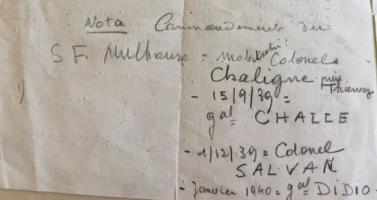 Nota Commandement du
S F. Mulhouse = mobilisation:
Colonels
Chaligne puis
Thiervoz
- 15/9/39 =
gal CHALLE
- 1/12/39 = Colonel
SALVAN
- Janvier 1940 = gal DIDIO